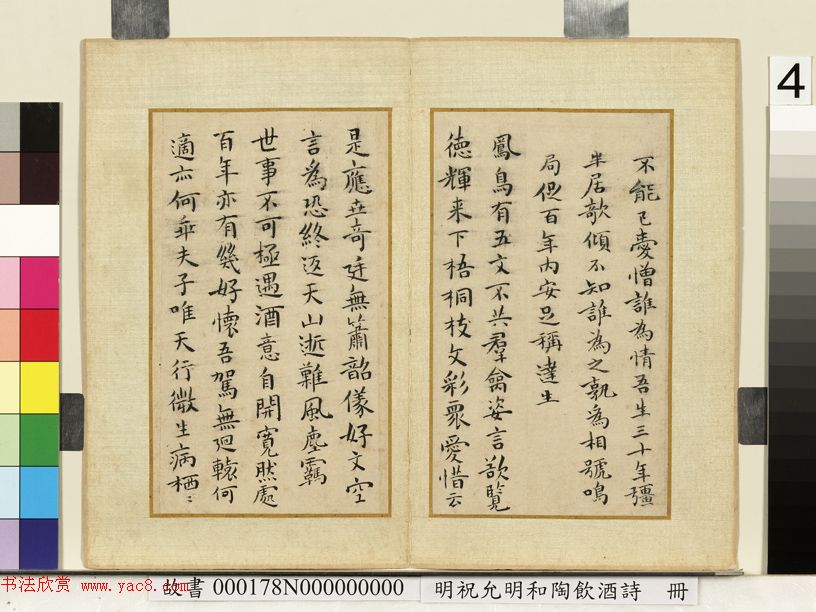 不能已憂憎誰為情吾生三十年殭
半居欹傾不知誰為之孰為相號鳴
局促百年內安足稱達生
鳳鳥有五文不共羣禽姿言欲覽
徳輝来下梧桐枝文彩眾愛惜云
是應世奇廷無簫韶儀好文空
言為恐終返天山逝難風塵羈
世事不可極遇酒意自開寬然處
百年亦有幾好懷吾駕無迴轅何
適亦何乖夫子唯天行微生病栖〻
4
书法欣赏 www.yac8.com
故書 000178N000000000
明祝允明和陶飲酒詩 冊